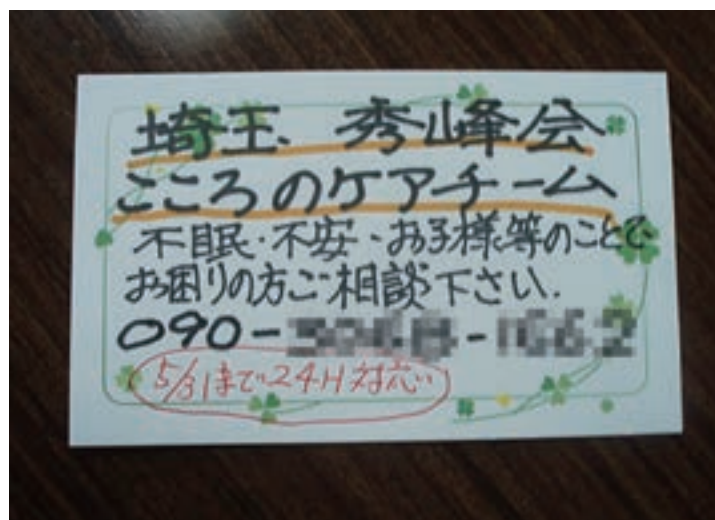 埼玉 秀峰会
こころのケアチーム
不眠・不安・お子様等のことで
お困りの方ご相談下さい.
090-
5/31まで24H対応